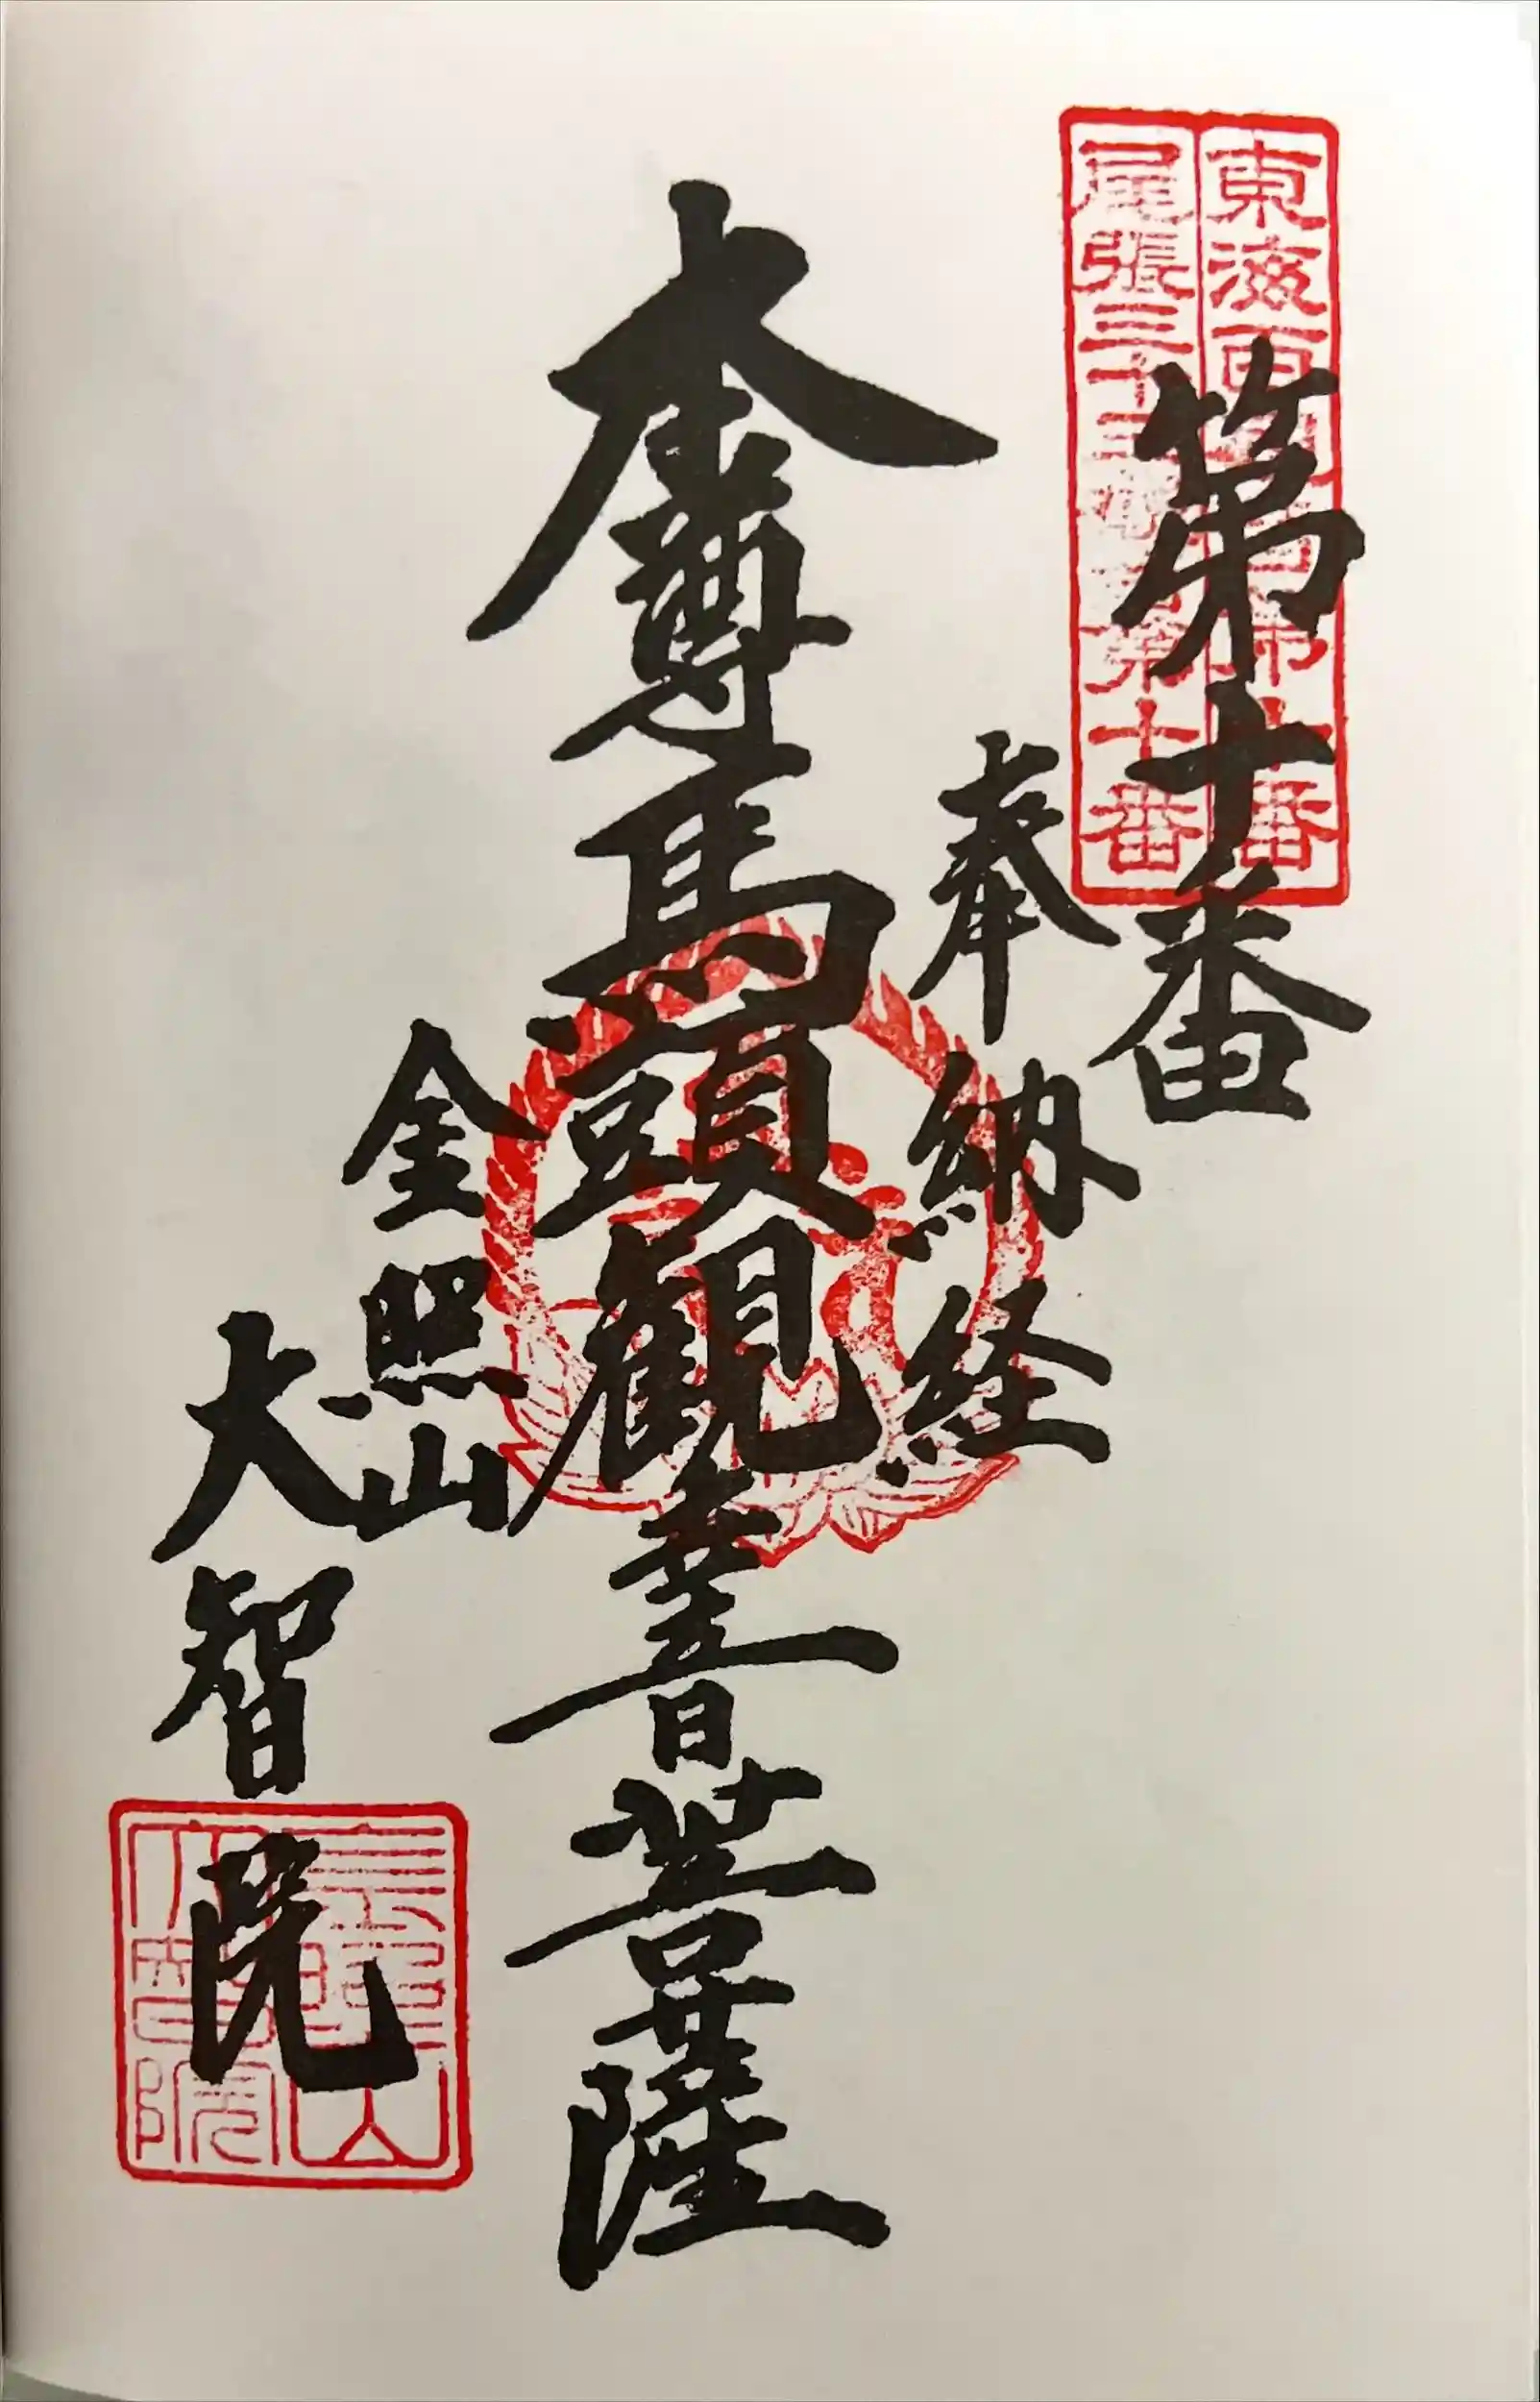 東海百観音第十番
尾張三十三観音第十番
第十番
奉納経
本尊馬頭観世音菩薩
金照山
大智院
金照山
大智院